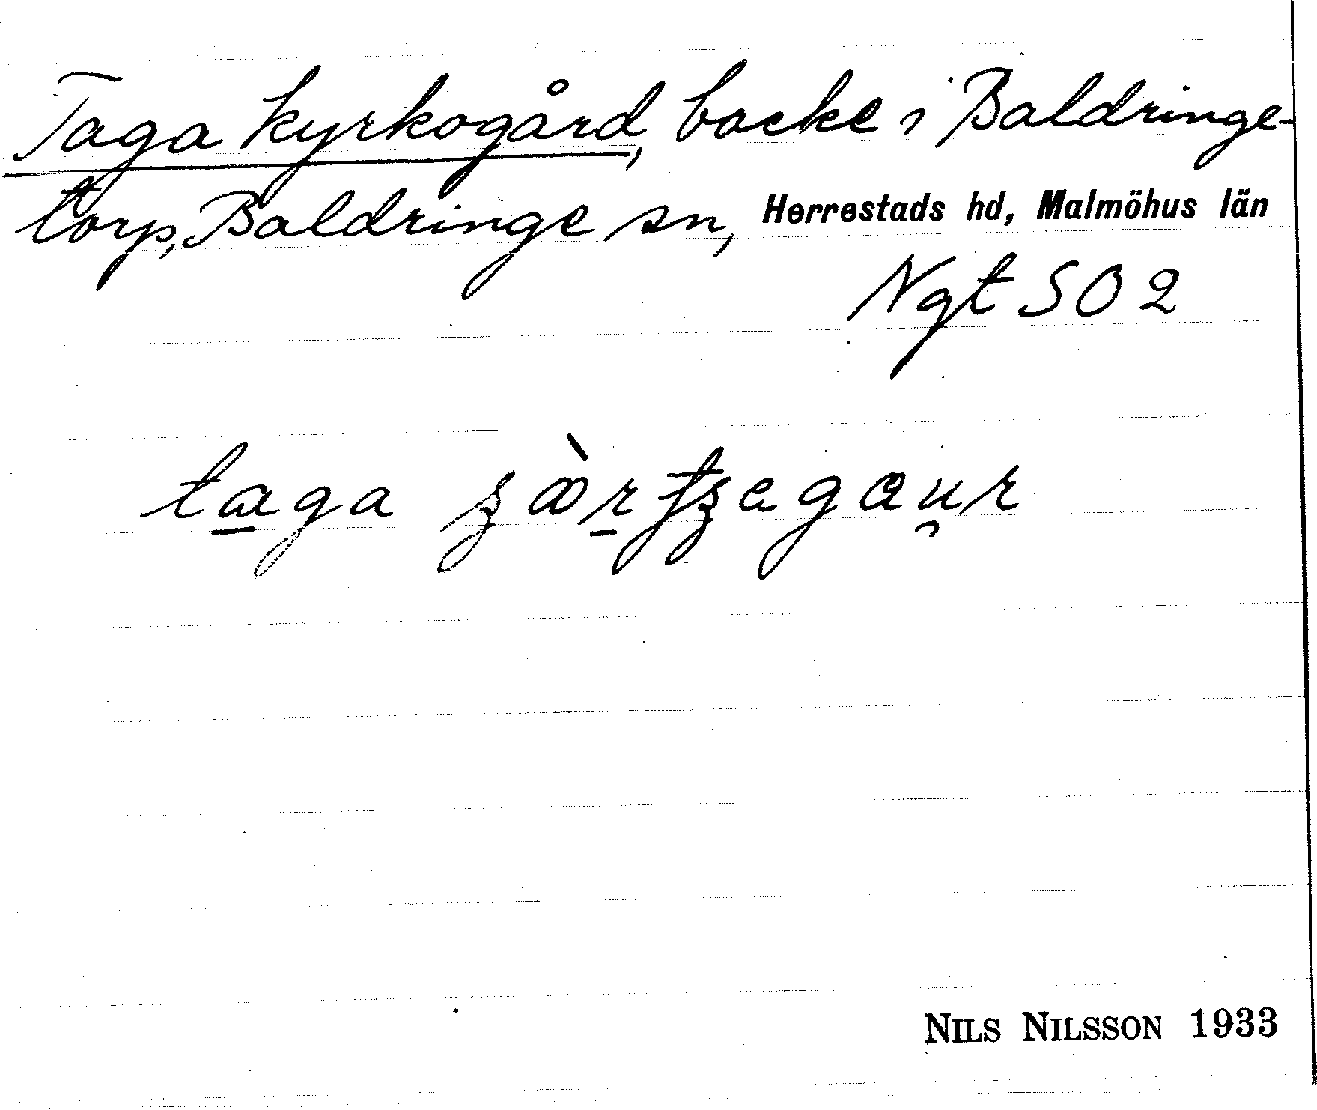 Taga kyrkogård, backe i Baldringe-
torp, Baldringe sn, Herrestads hd, Malmöhus län
Ngt SO 2
taga
NILS NILSSON 1933